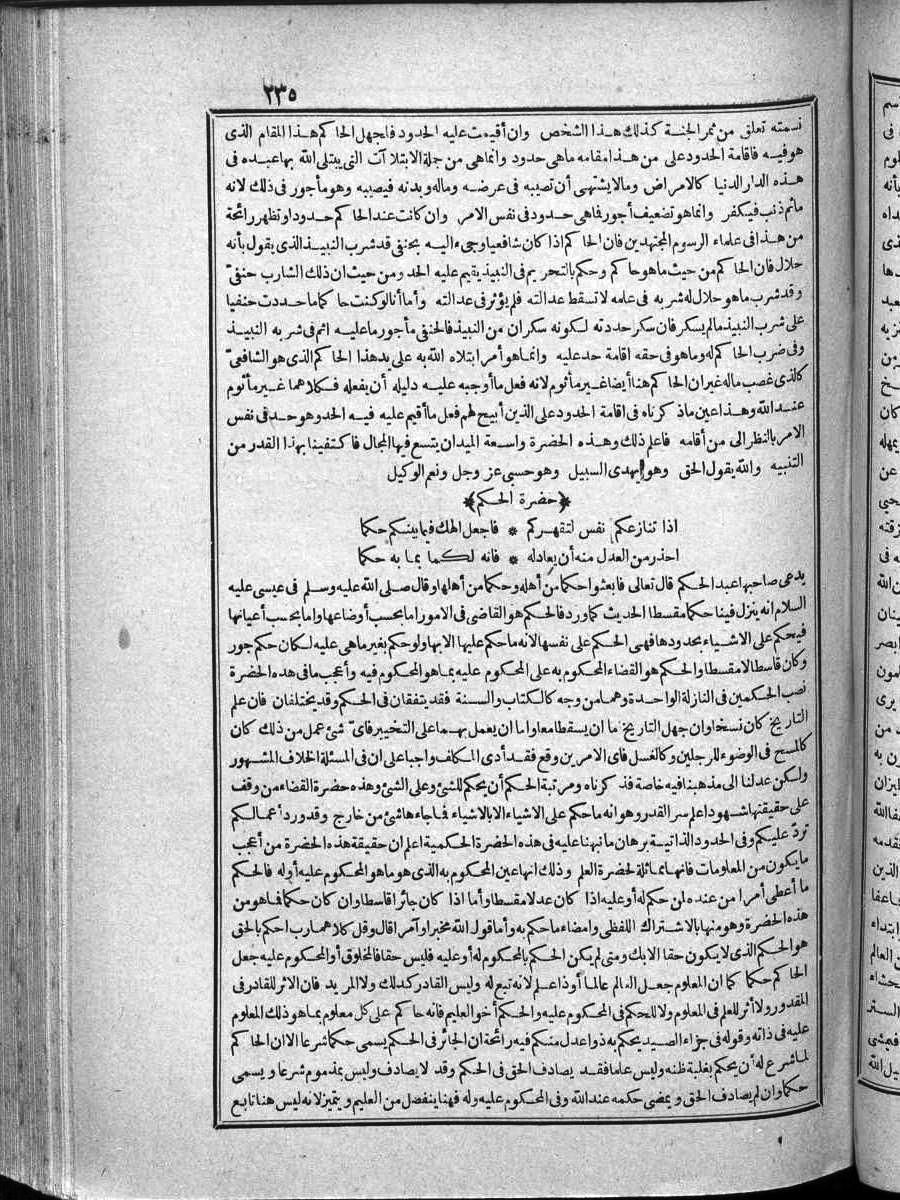 ٢٣٥
نسمته تعلق من ثمر الجنة كذلك هذا الشخص وان أقيمت عليه الحدود فلجهل الحاكم هذا المقام الذى
هو فيه فاقامة الحدود على من هذا مقامه ما هى حدود وانما هى من جملة الابتلاآت التى يبتلى الله بها عبده فى
هذه الدار الدنيا كالامراض وما لا يشتهى أن تصيبه فى عرضه وماله وبدنه فيصيبه وهو مأجور فى ذلك لانه
ما ثم ذنب فيكفر وانما هو تضعيف أجور فما هى حدود فى نفس الامر وان كانت عند الحاكم حدودا وتظهر رائحة
من هذا فى علماء الرسوم المجتهدين فان الحاكم اذا كان شافعيا وجىء اليه بحنفى قد شرب النبيذ الذى يقول بأنه
حلال فان الحاكم من حيث ما هو حاكم وحكم بالتحريم فى النبيذ يقيم عليه الحد ومن حيث ان ذلك الشارب حنفىّ
وقد شرب ما هو حلال له شربه فى علمه لا تسقط عدالته فلم يؤثر فى عدالته وأما أنا لو كنت حاكما ما حددت حنفيا
على شرب النبيذ ما لم يسكر فان سكر حددته لكونه سكران من النبيذ فالحنفى مأجور ما عليه اثم فى شربه النبيذ
وفى ضرب الحاكم له وما هو فى حقه اقامة حد عليه وانما هو أمر ابتلاه الله به على يد هذا الحاكم الذى هو الشافعىّ
كالذى غصب ماله غير ان الحاكم هنا أيضا غير مأثوم لانه فعل ما أوجبه عليه دليله أن يفعله فكلاهما غير مأثوم
عند الله وهذا عين ما ذكرناه فى اقامة الحدود على الذين أبيح لهم فعل ما أقيم عليه فيه الحد وهو حد فى نفس
الامر بالنظر الى من أقامه فاعلم ذلك وهذه الحضرة واسعة الميدان يتسع فيها المجال فاكتفينا بهذا القدر من
التنبيه والله يقول الحق وهو يهدى السبيل وهو حسبى عز وجل ونعم الوكيل
﴿حضرة الحكم﴾
اذا تنازعكم نفس لتقهركم * فاجعل الهك فيما بينكم حكما
احذر من العدل منه أن يعادله * فانه لكما بما به حكما
يدعى صاحبها عبد الحكم قال تعالى فابعثوا حكما من أهله وحكما من أهلها وقال صلى الله عليه وسلم فى عيسى عليه
السلام انه ينزل فينا حكما مقسطا الحديث كما ورد فالحكم هو القاضى فى الامور اما بحسب أوضاعها واما بحسب أعيانها
فيحكم على الاشياء بحدودها فهى الحكم على نفسها لانه ما حكم عليها الا بها ولو حكم بغير ما هى عليه لكان حكم جور
وكان قاسطا لا مقسطا والحكم هو القضاء المحكوم به على المحكوم عليه بما هو المحكوم فيه وأعجب ما فى هذه الحضرة
نصب الحكمين فى النازلة الواحدة وهما من وجه كالكتاب والسنة فقد يتفقان فى الحكم وقد يختلفان فان علم
التاريخ كان نسخا وان جهل التاريخ اما ان يسقطا معا واما ان يعمل بهما على التخيير فاىّ شئ عمل من ذلك كان
كالمسح فى الوضوء للرجلين وكالغسل فاى الامرين وقع فقد أدى المكلف واجبا على ان فى المسئلة الخلاف المشهور
ولكن عدلنا الى مذهبنا فيه خاصة فذكرناه ومرتبة الحكم أن يحكم للشئ وعلى الشئ وهذه حضرة القضاء من وقف
على حقيقتها شهودا علم سر القدر وهو انه ما حكم على الاشياء الا بالاشياء فما جاءها شئ من خارج وقد ورد أعمالكم
تردّ عليكم وفى الحدود الذاتية برهان ما نبهنا عليه فى هذه الحضرة الحكمية اعلم ان حقيقة هذه الحضرة من أعجب
ما يكون من المعلومات فانها مماثلة لحضرة العلم وذلك انها عين المحكوم به الذى هو ما هو المحكوم عليه أو له فالحكم
ما أعطى أمرا من عنده لمن حكم له أو عليه اذا كان عدلا مقسطا وأما اذا كان جائرا قاسطا وان كان حكما فما هو من
هذه الحضرة وهو منها بالاشتراك اللفظى وامضاء ما حكم به وأما قول الله مخبرا وآمرا قال وقل كلاهما رب احكم بالحق
هو الحكم الذى لا يكون حقا الا بك ومتى لم يكن الحكم بالمحكوم له أو عليه فليس حقا فالمخلوق أو المحكوم عليه جعل
الحاكم حكما كما ان المعلوم جعل العالم عالما أو ذا علم لانه تبع له وليس القادر كذلك ولا المريد فان الاثر للقادر فى
المقدور ولا أثر للعلم فى المعلوم ولا للحكم فى المحكوم عليه والحكم أخو العليم فانه حاكم على كل معلوم بما هو ذلك المعلوم
عليه فى ذاته وقوله فى جزاء الصيد يحكم به ذوا عدل منكم فيه رائحة ان الجائر فى الحكم يسمى حكما شرعا الا ان الحاكم
لما شرع له أن يحكم بغلبة ظنه وليس علما فقد يصادف الحق فى الحكم وقد لا يصادف وليس بمذموم شرعا ويسمى
حكما وان لم يصادف الحق ويمضى حكمه عند الله وفى المحكوم عليه وله فهنا ينفصل من العليم ويتميز لانه ليس هنا تابع